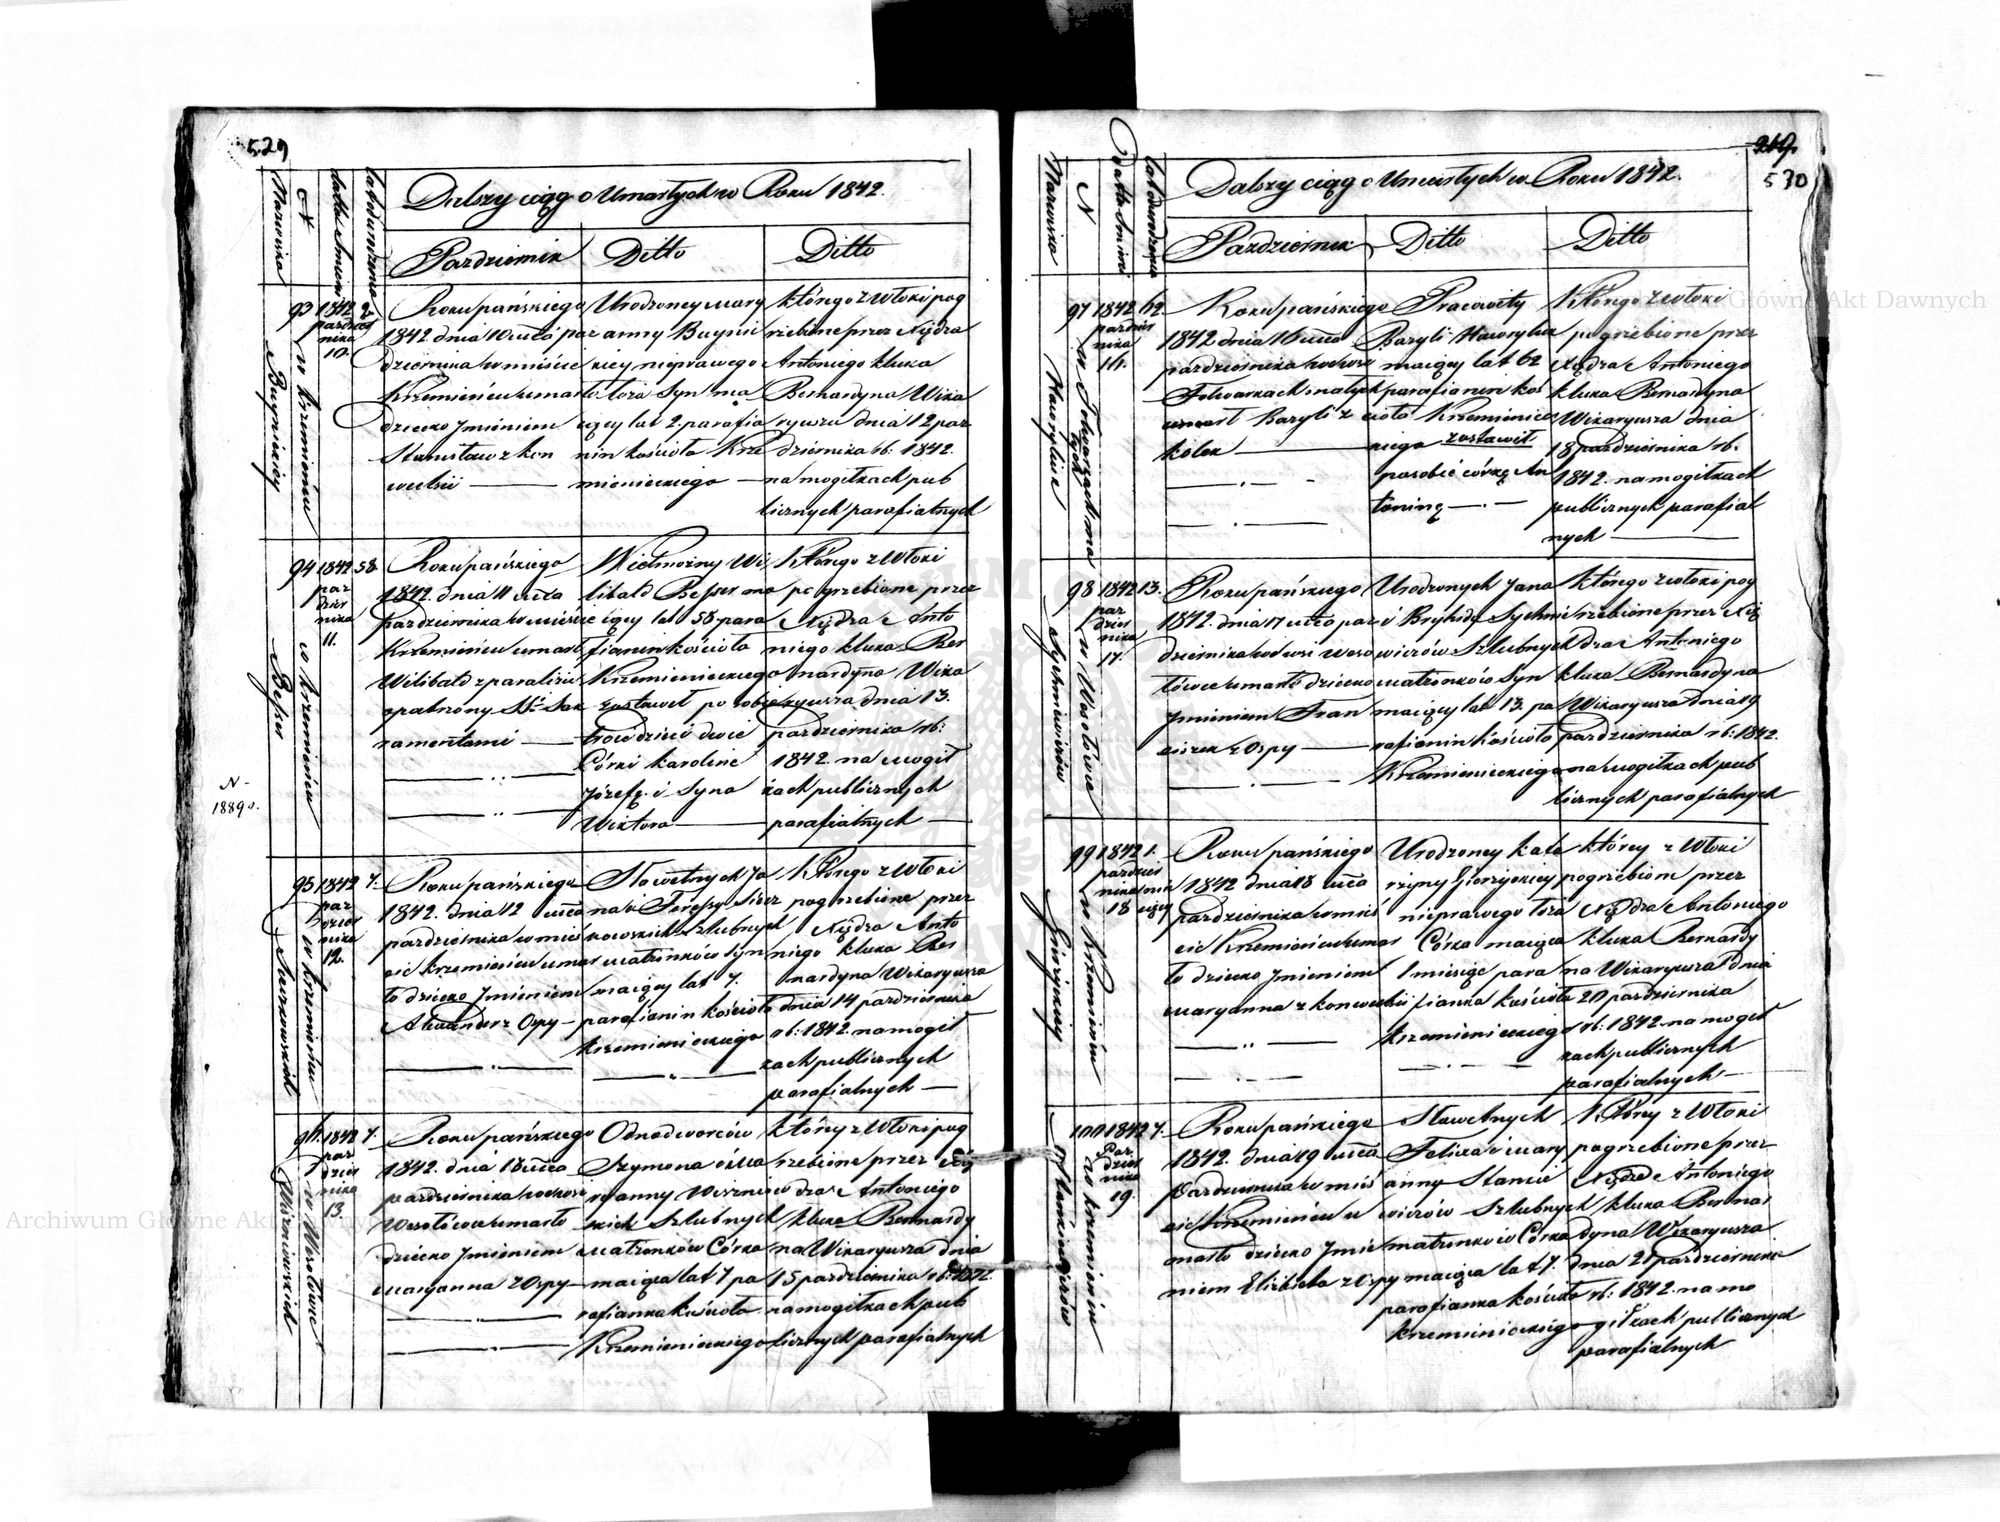 529
Nazwiska
N
datta Smierci
lat od urodzenia
Dalszy ciąg o Umarłych w Roku 1842.
Pazdziernik
Ditto
Ditto
93
1842
pazdzier
nika
10.
2
w Krzemieńcu
Roku pańskiego
1842 dnia 10 mca paz
dziernika w mieście
Krzemieńcu umarło
dziecko Jmieniem
Stanisław z kon
wulsii
Urodzoney Mary
anny
nieprawego
łoża Syn ma
iący lat 2. parafia
nin kościoła Krze
mienieckiego
Którego zwłoki pog
rzebione przez Xiędza
Antoniego kluka
Bernardyna Wika
ryusza dnia 12 paz
dziernika rb: 1842.
na mogiłkach pub
licznych parafialnych
94
1842
paz
dzier
nika
11.
58
w Krzemieńcu
Besser
N-
1889 r.
Roku pańskiego
1842. dnia 11 mca
pazdziernika w mieście
Krzemieńcu umarł
Wilibald z paraliżu
opatrzony SS. Sak
ramentami
Wielmożny Wi
libald Besser ma
iący lat 58 para
fianin kościoła
Krzemienieckiego
zostawił po sobie
troie dzieci dwie
Córki Karolinę
Józefę i Syna
Wiktora
Którego zwłoki
pogrzebione przez
Xiędza Anto
niego kluka Ber
nardyna Wika
ryusza dnia 13.
pazdziernika rb:
1842. na mogił
kach publicznych
parafialnych
95
1842
paz
dzier
nika
12.
7.
w Krzemieńcu
Roku pańskiego
1842. dnia 12 mca
pazdziernika w mieś
cie Krzemieńcu umar
ło dziecko Jmieniem
Alexander z Ospy
Sławetnych Ja
na i Teressy
Szlubnych
małżonków Syn
maiący lat 7.
parafianin kościoła
krzemienieckiego
Którego zwłoki
pogrzebione przez
Xiędza Anto
niego kluka Ber
nardyna Wikaryusza
dnia 14 pazdziernika
rb: 1842. na mogił
kach publicznych
parafialnych
96.
1842
paz
dzier
nika
13.
7.
w Wesołówce
Wiszniowskich
Roku pańskiego
1842. dnia 13 mca
pazdziernika we wsi
Wesołówce umarło
dziecko Jmieniem
Maryanna z Ospy
Odnodworców
Szymona i Ma
ryanny Wiszniow
skich Szlubnych
małżonków Córka
maiąca lat 7 pa
rafianka kościoła
Krzemienieckiego
Który zwłoki pog
rzebione przez Xię
dza Antoniego
kluka Bernardy
na Wikaryusza dnia
15 pazdziernika rb: 1842.
na mogiłkach pub
licznych parafialnych
219.
530
Nazwiska
N
Datta Smierci
lat od urodzenia
Dalszy ciąg o Umarłych w Roku 1842.
Pazdziernik
Ditto
Ditto
97
1842
pazdzier
nika
62.
Roku pańskiego
1842 dnia 16 mca
pazdziernika
Folwarkach małych
umarł Bazyli z
kolek
Pracowity
Bazyli
maiący lat 62
parafianin koś
cioła Krzemiениec
kiego zostawił
po sobie córkę An
toninę
Którego zwłoki
pogrzebione przez
Xiędza Antoniego
kluka Bernardyna
Wikaryusza dnia
18 pazdziernika rb.
1842. na mogiłkach
publicznych parafial
nych
98
1842
paz
dzier
nika
17.
13.
w Wesołówce
Sychniewiczów
Roku pańskiego
1842. dnia 17 mca paz
dziernika we wsi Weso
łówce umarło dziecko
Jmieniem Fran
ciszek z Ospy
Urodzonych Jana
i Brygidy Sychnie
wiczów Szlubnych
małżonków Syn
maiący lat 13. pa
rafianin kościoła
Krzemienieckiego
którego zwłoki pog
rzebione przez Xię
dza Antoniego
kluka Bernardyna
Wikaryusza dnia 19
pazdziernika rb: 1842.
na mogiłkach pub
licznych parafialnych
99
1842
pazdzier
nika
18
1.
w Krzemieńcu
Roku pańskiego
1842 dnia 18 mca
pazdziernika w mieś
cie Krzemieńcu umar
ło dziecko Jmieniem
Maryanna z konwulsii
Urodzoney Kata
rzyny
nieprawego łoża
Córka maiąca
1 miesiąc para
fianka kościoła
krzemienieckiego
którey zwłoki
pogrzebione przez
Xiędza Antoniego
kluka Bernardy
na Wikaryusza dnia
20 pazdziernika
rb: 1842. na mogił
kach publicznych
parafialnych
100
1842
Paz
dzier
nika
19.
7.
w Krzemieńcu
Roku pańskiego
1842. dnia 19 mca
Pazdziernika w mieś
cie Krzemieńcu u
marło dziecko Jmie
niem Elżbieta z Ospy
Sławetnych
Felixa i Mary
anny Stankie
wiczów Szlubnych
małżonków Córka
maiąca lat 7.
parafianka kościoła
krzemienieckiego
Którey zwłoki
pogrzebione przez
Xiędza Antoniego
kluka Bernar
dyna Wikaryusza
dnia 21 pazdziernika
rb: 1842. na mo
giłkach publicznych
parafialnych
Archiwum Główne Akt Dawnych
Główne Akt Dawnych